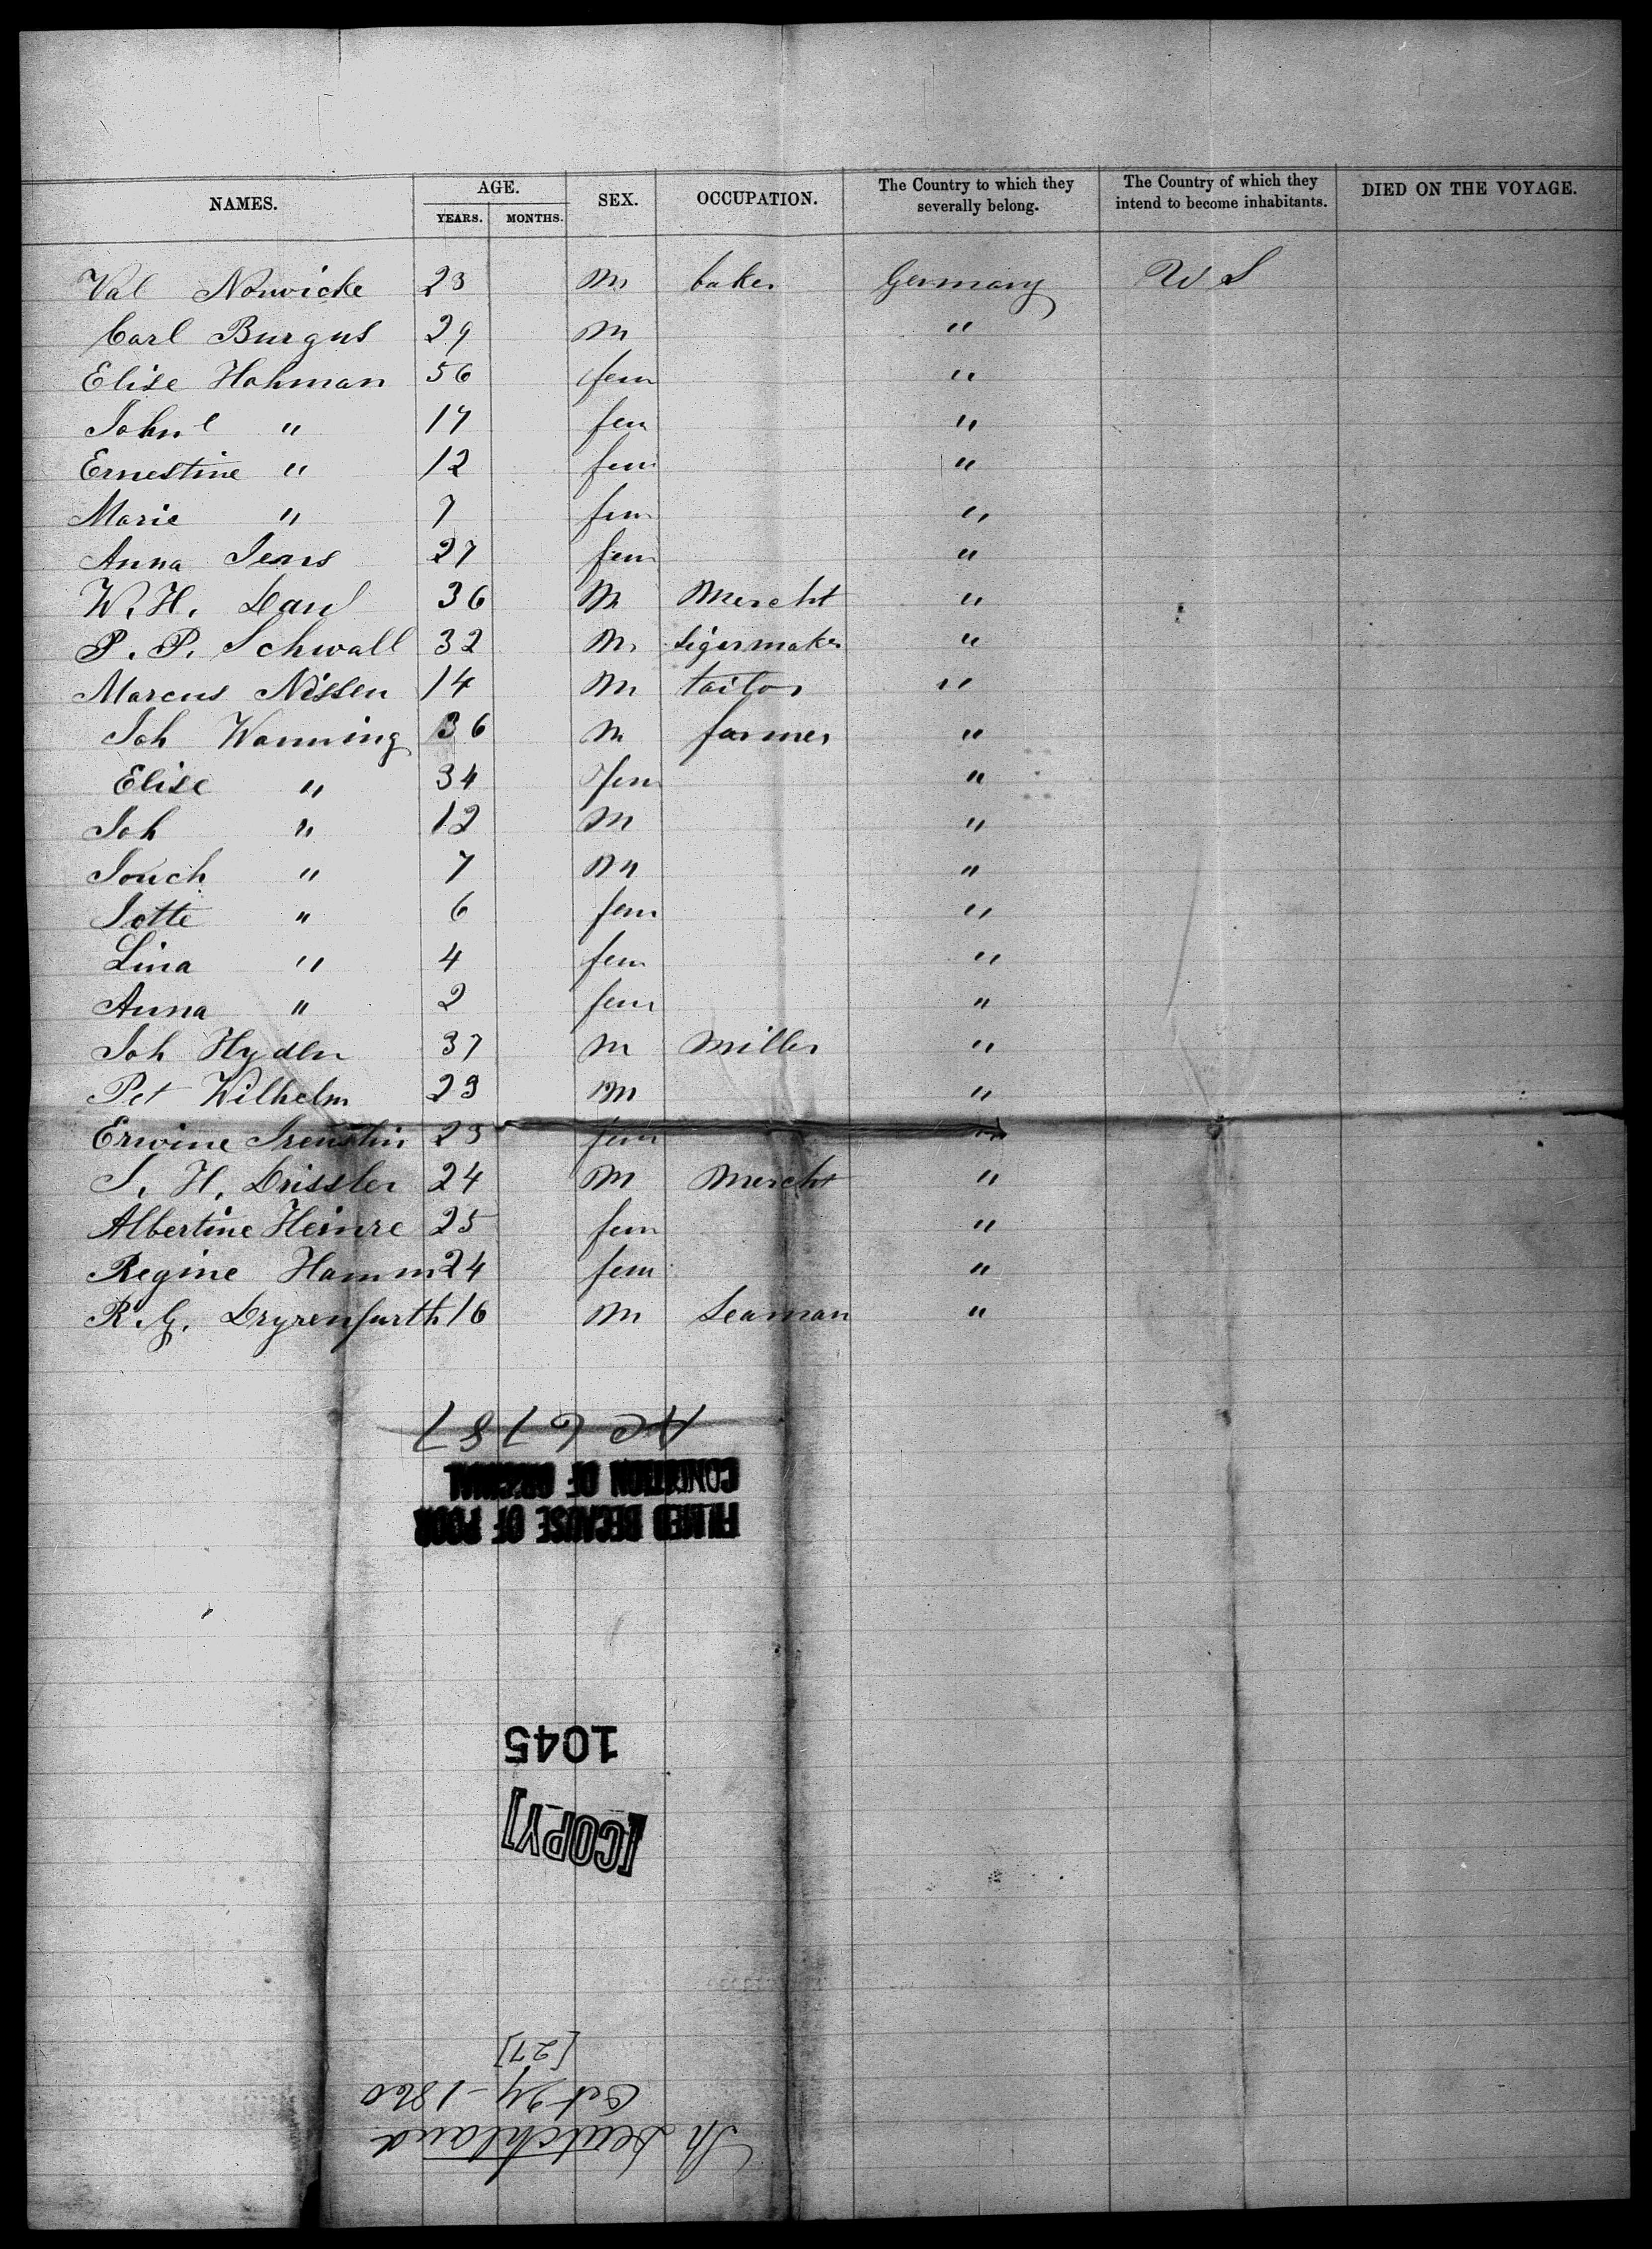 NAMES. AGE. YEARS. MONTHS. SEX. OCCUPATION. The Country to which they severally belong. The Country of which they intend to become inhabitants. DIED ON THE VOYAGE.
Val Nowicke 23 m baker Germany U S
Carl Burgus 29 m "
Elise Hohman 56 fem "
Johne " 17 fem "
Ernestine " 12 fem "
Marie " 7 fem "
Anna Jens 27 fem "
W. H. 36 m Mercht "
P. P. Schwall 32 m Sigarmaker "
Marcus Nissen 14 m tailor "
Joh Wanning 36 m farmer "
Elise " 34 fem "
Joh " 12 m "
Jouch " 7 m "
Jotte " 6 fem "
Lina " 4 fem "
Anna " 2 fem "
Joh Hyden 37 m Miller "
Pet Wilhelm 23 m "
Erwine 23 fem "
J. H. Drissler 24 m Mercht "
Albertine Heinre 25 fem "
Regine Hamm 24 fem "
R. G. Dryrenfurth 16 m Seaman "
AC 6787
FILMED BECAUSE OF POOR
CONDITION OF ORIGINAL
1045
[COPY]
Sh Deutchland
Oct 24 - 1860
[27]